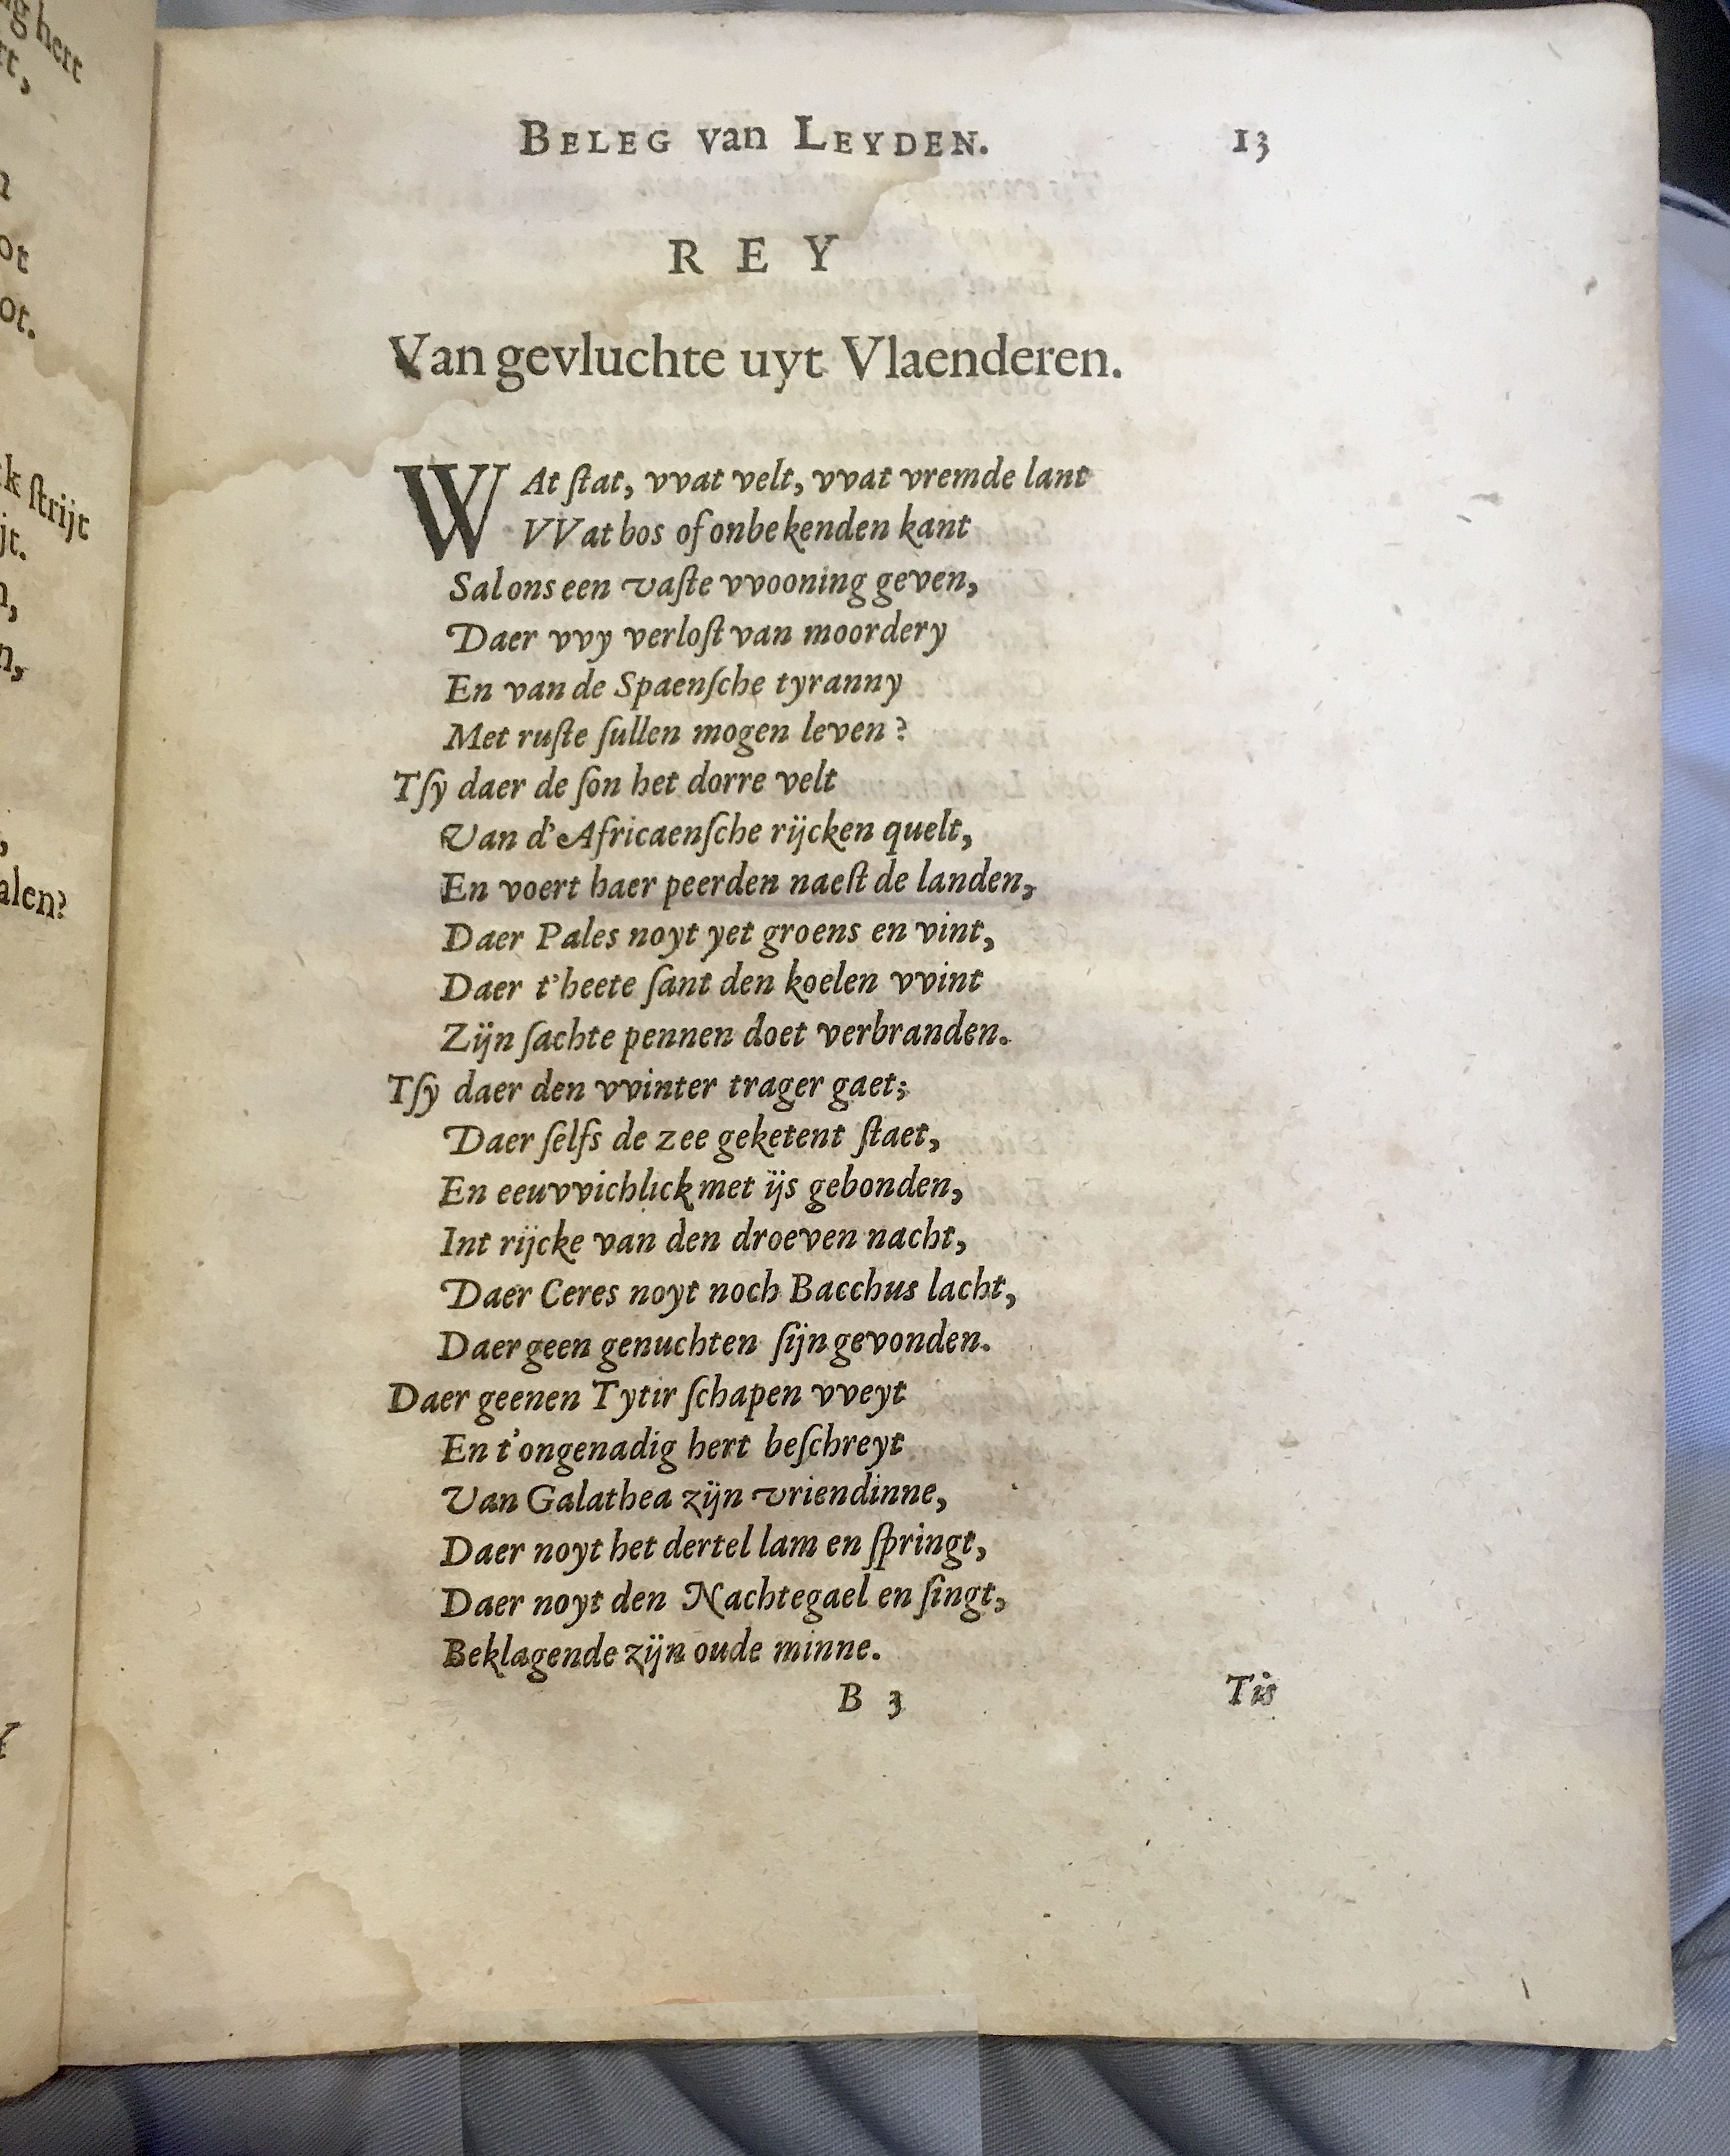 BELEG van LEYDEN. 13
REY
Van gevluchte uyt Vlaenderen.
WAt ſtat, vvat velt, vvat vremde lant
VVat bos of onbekenden kant
Sal ons een vaſte vvooning geven,
Daer vvy verloſt van moordery
En van de Spaenſche tyranny
Met ruſte ſullen mogen leven?
Tſy daer de ſon het dorre velt
Van d'Africaenſche rijcken quelt,
En voert haer peerden naeſt de landen,
Daer Pales noyt yet groens en vint,
Daer t'heete ſant den koelen vvint
Zijn ſachte pennen doet verbranden.
Tſy daer den vvinter trager gaet;
Daer ſelfs de zee geketent ſtaet,
En eeuvvichlick met ijs gebonden,
Int rijcke van den droeven nacht,
Daer Ceres noyt noch Bacchus lacht,
Daer geen genuchten ſijn gevonden.
Daer geenen Tytir ſchapen vveyt
En t'ongenadig hert beſchreyt
Van Galathea zijn vriendinne,
Daer noyt het dertel lam en ſpringt,
Daer noyt den Nachtegael en ſingt,
Beklagende zijn oude minne.
B 3 Tis